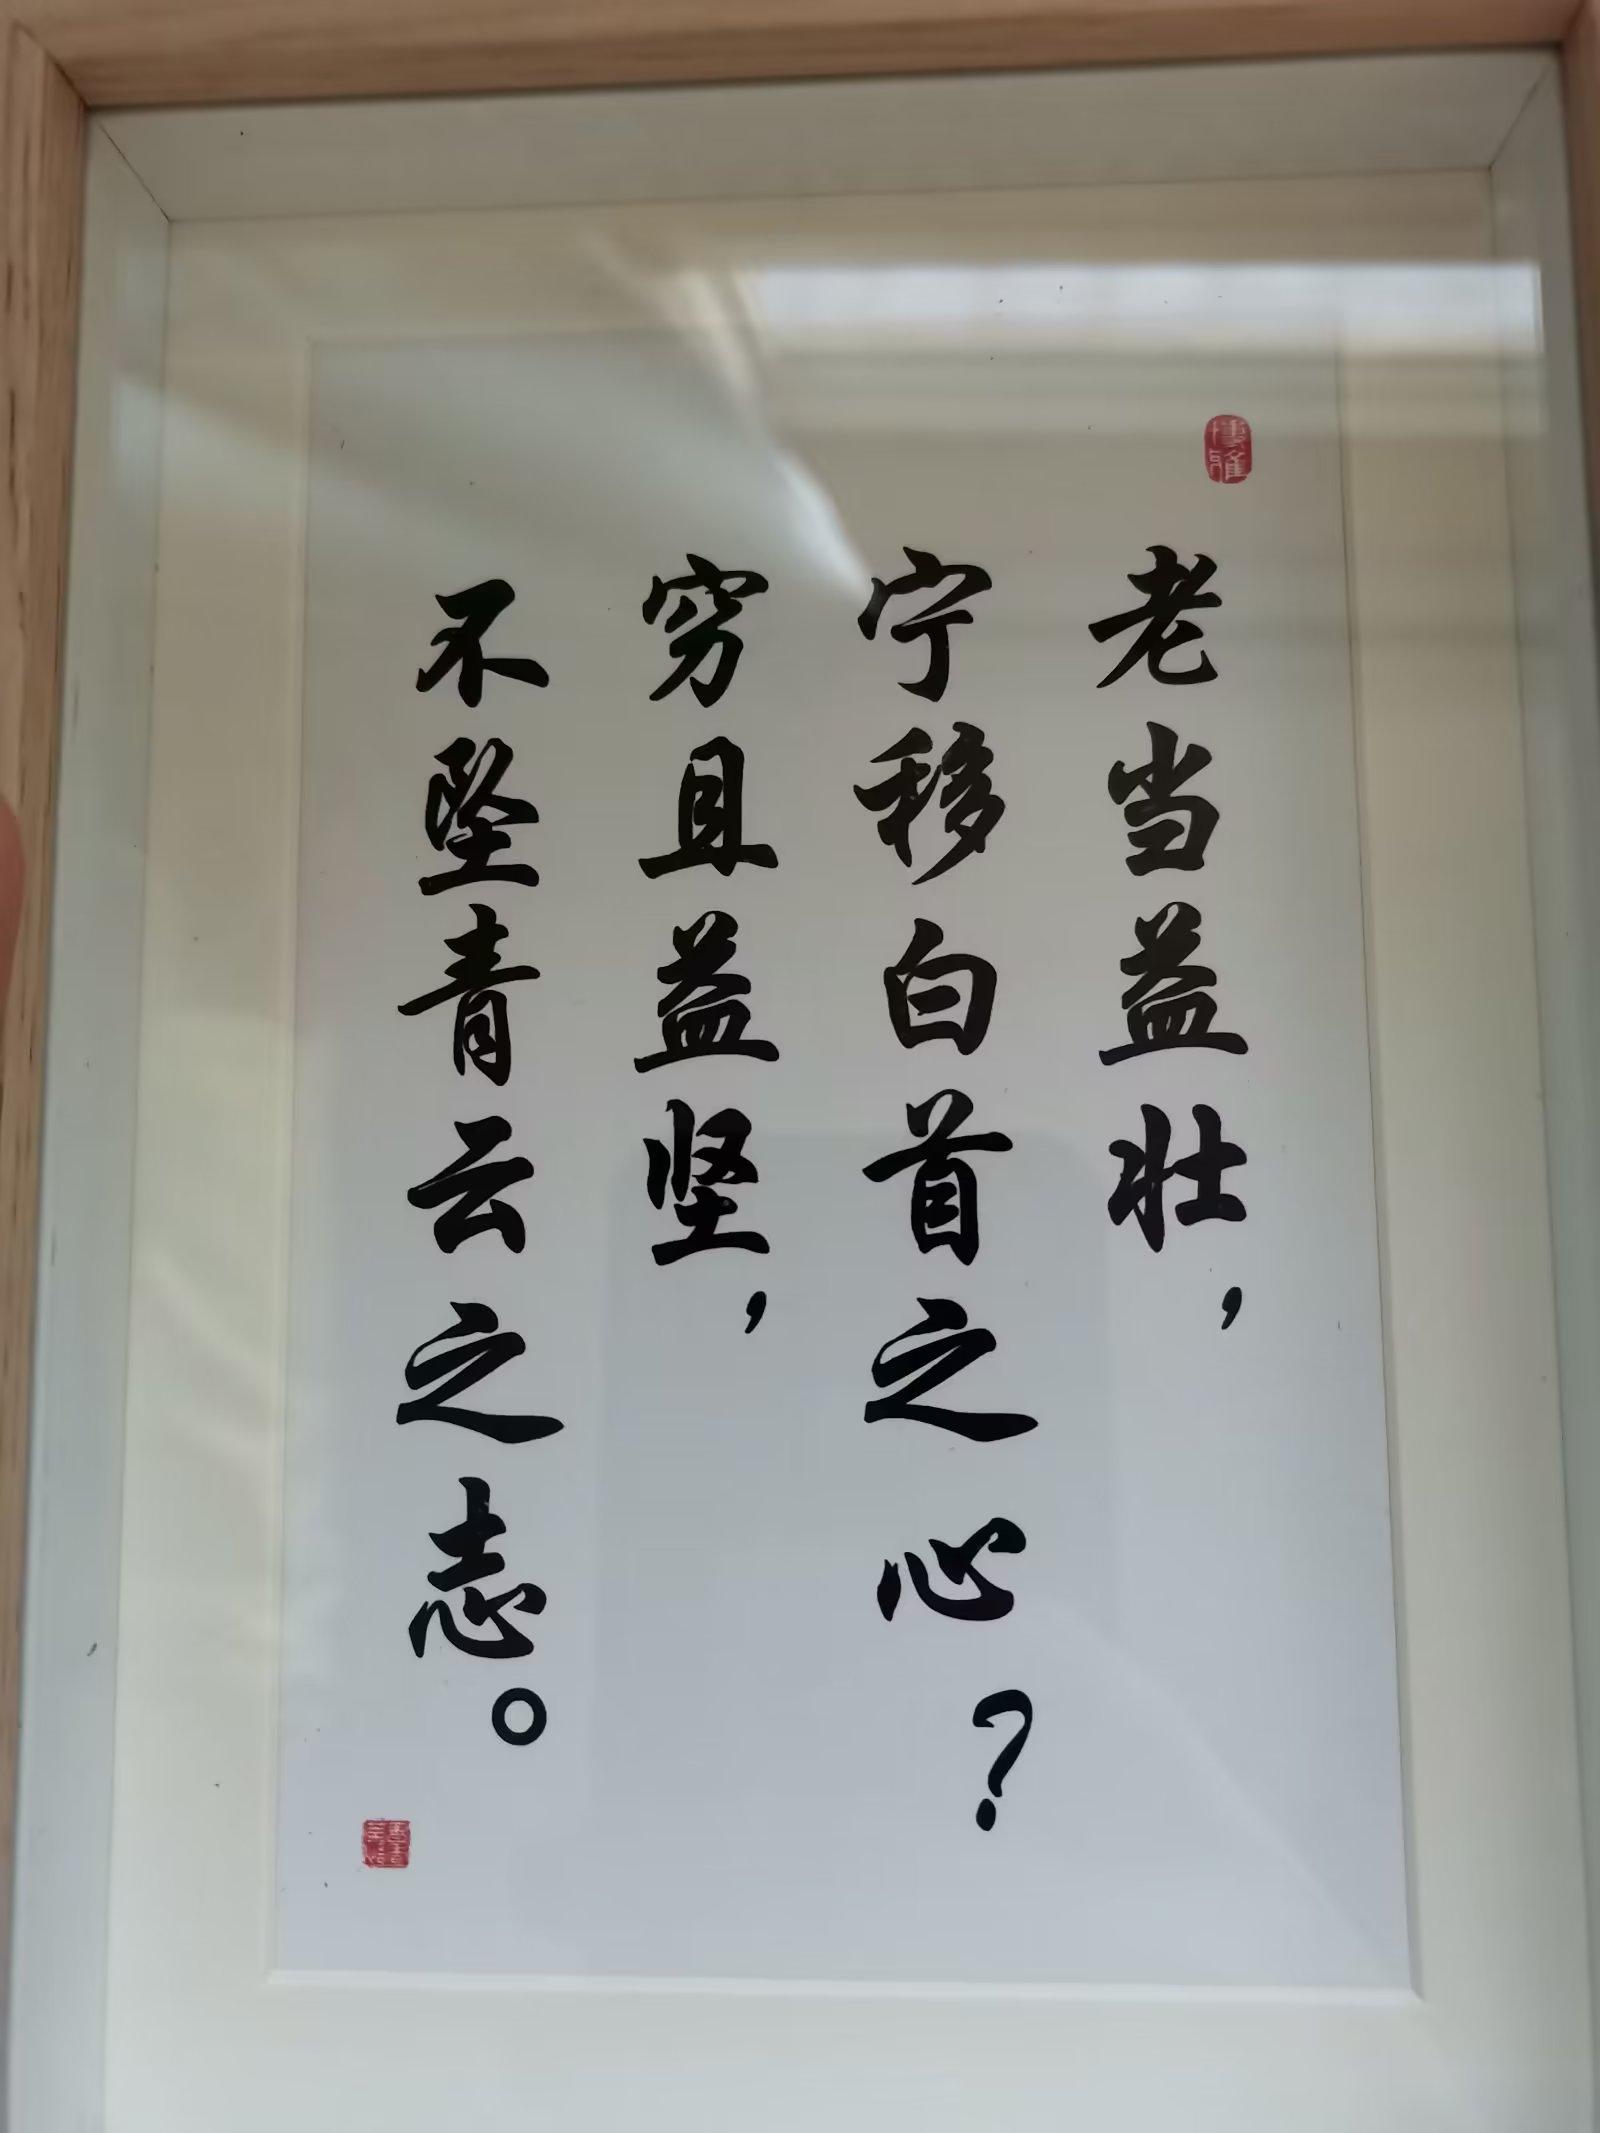 老当益壮，
宁移白首之心？
穷且益坚，
不坠青云之志。
博雅